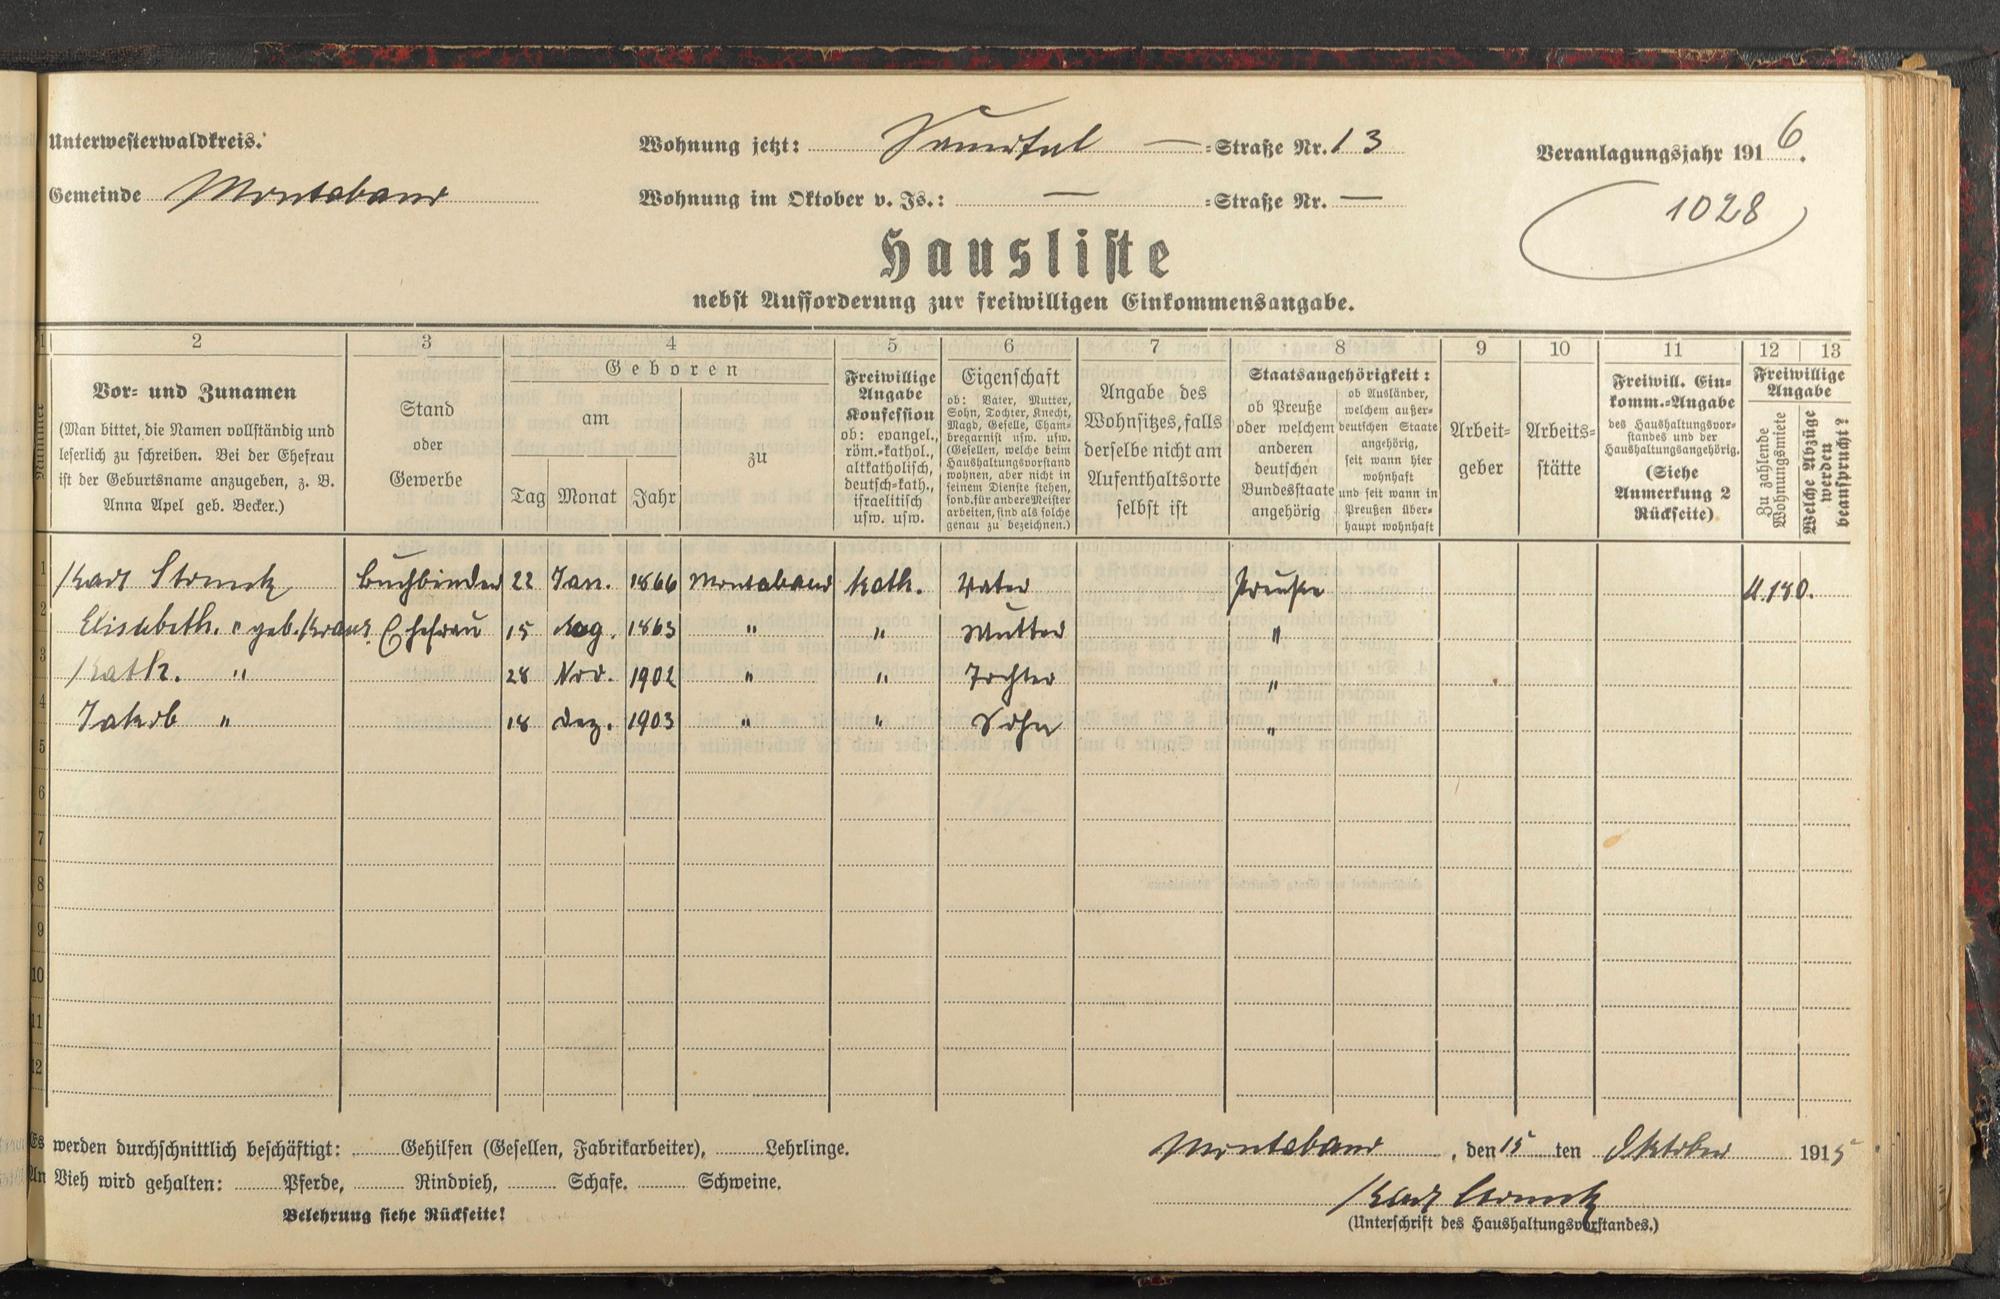 Unterwesterwaldkreis.
Gemeinde Montabaur
Wohnung jetzt: Sauertal — =Straße Nr. 13
Wohnung im Oktober v. Js.: — =Straße Nr. —
Veranlagungsjahr 1916.
1028
Hausliste
nebst Aufforderung zur freiwilligen Einkommensangabe.
1 2 3 4 5 6 7 8 9 10 11 12 13
Nummer
Vor- und Zunamen
(Man bittet, die Namen vollständig und
leserlich zu schreiben. Bei der Ehefrau
ist der Geburtsname anzugeben, z. B.
Anna Apel geb. Becker.)
Stand
oder
Gewerbe
Geboren
am
Tag Monat Jahr
zu
Freiwillige
Angabe
Konfession
ob: evangel.,
röm.-kathol.,
altkatholisch,
deutsch-kath.,
israelitisch
usw. usw.
Eigenschaft
ob: Vater, Mutter,
Sohn, Tochter, Knecht,
Magd, Geselle, Cham-
bregarnist usw. usw.
(Gesellen, welche beim
Haushaltungsvorstand
wohnen, aber nicht in
seinem Dienste stehen,
sond. für andere Meister
arbeiten, sind als solche
genau zu bezeichnen.)
Angabe des
Wohnsitzes, falls
derselbe nicht am
Aufenthaltsorte
selbst ist
Staatsangehörigkeit:
ob Preuße
oder welchem
anderen
deutschen
Bundesstaate
angehörig
ob Ausländer,
welchem außer-
deutschen Staate
angehörig,
seit wann hier
wohnhaft
und seit wann in
Preußen über-
haupt wohnhaft
Arbeit-
geber
Arbeits-
stätte
Freiwill. Ein-
komm.-Angabe
des Haushaltungsvor-
standes und der
Haushaltungsangehörig.
(Siehe
Anmerkung 2
Rückseite)
Freiwillige
Angabe
Zu zahlende
Wohnungsmiete
Welche Abzüge
werden
beansprucht?
1 Karl Struck Buchbinder 22 Jan. 1866 Montabaur Kath. Vater Preuße M. 180.
2 Elisabeth. " geb. Kranz Ehefrau 15 Aug. 1863 " " Mutter "
3 Kath. " 28 Nov. 1902 " " Tochter "
4 Jakob " 18 Dez. 1903 " " Sohn "
5
6
7
8
9
10
11
12
Es werden durchschnittlich beschäftigt: Gehilfen (Gesellen, Fabrikarbeiter), Lehrlinge.
An Vieh wird gehalten: Pferde, Rindvieh, Schafe. Schweine.
Belehrung siehe Rückseite!
Montabaur, den 15 ten Oktober 1915
Karl Struck
(Unterschrift des Haushaltungsvorstandes.)